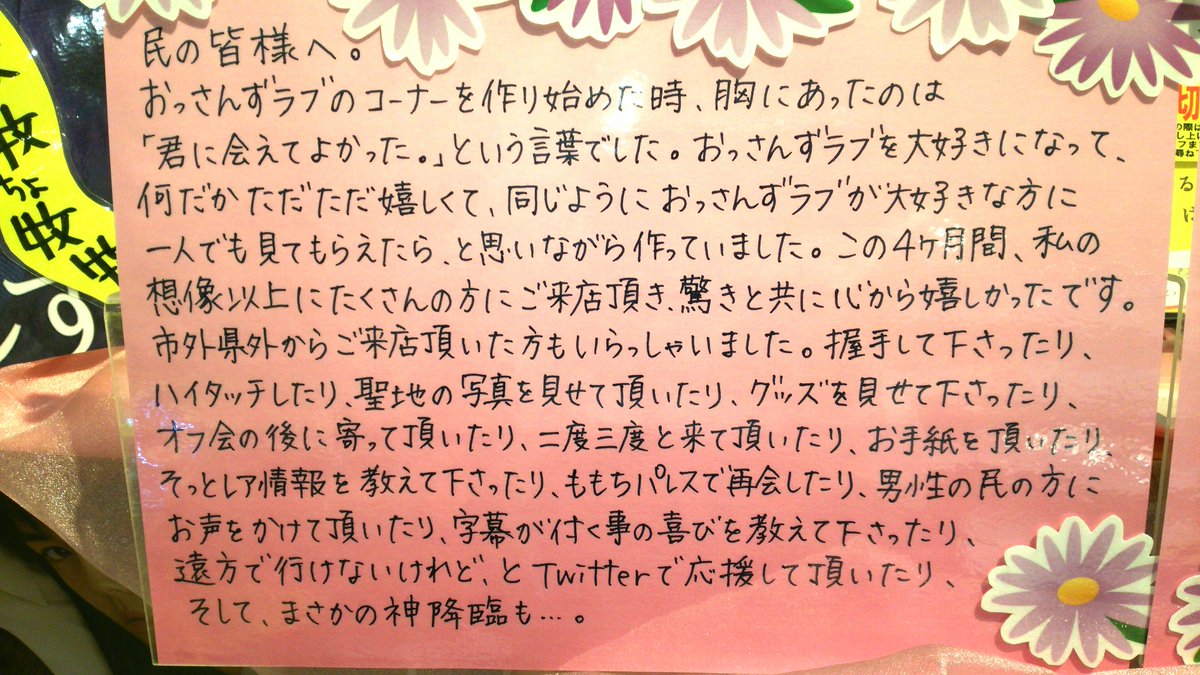 民の皆様へ。
おっさんずラブのコーナーを作り始めた時、胸にあったのは
「君に会えてよかった。」という言葉でした。おっさんずラブを大好きになって、
何だかただただ嬉しくて、同じようにおっさんずラブが大好きな方に
一人でも見てもらえたら、と思いながら作っていました。この4ヶ月間、私の
想像以上にたくさんの方にご来店頂き、驚きと共に心から嬉しかったです。
市外県外からご来店頂いた方もいらっしゃいました。握手して下さったり、
ハイタッチしたり、聖地の写真を見せて頂いたり、グッズを見せて下さったり、
オフ会の後に寄って頂いたり、二度三度と来て頂いたり、お手紙を頂いたり、
そっとレア情報を教えて下さったり、ももちパレスで再会したり、男性の民の方に
お声をかけて頂いたり、字幕が付く事の喜びを教えて下さったり、
遠方で行けないけれど、とTwitterで応援して頂いたり、
そして、まさかの神降臨も…。
牧
ちょ
牧
9
切